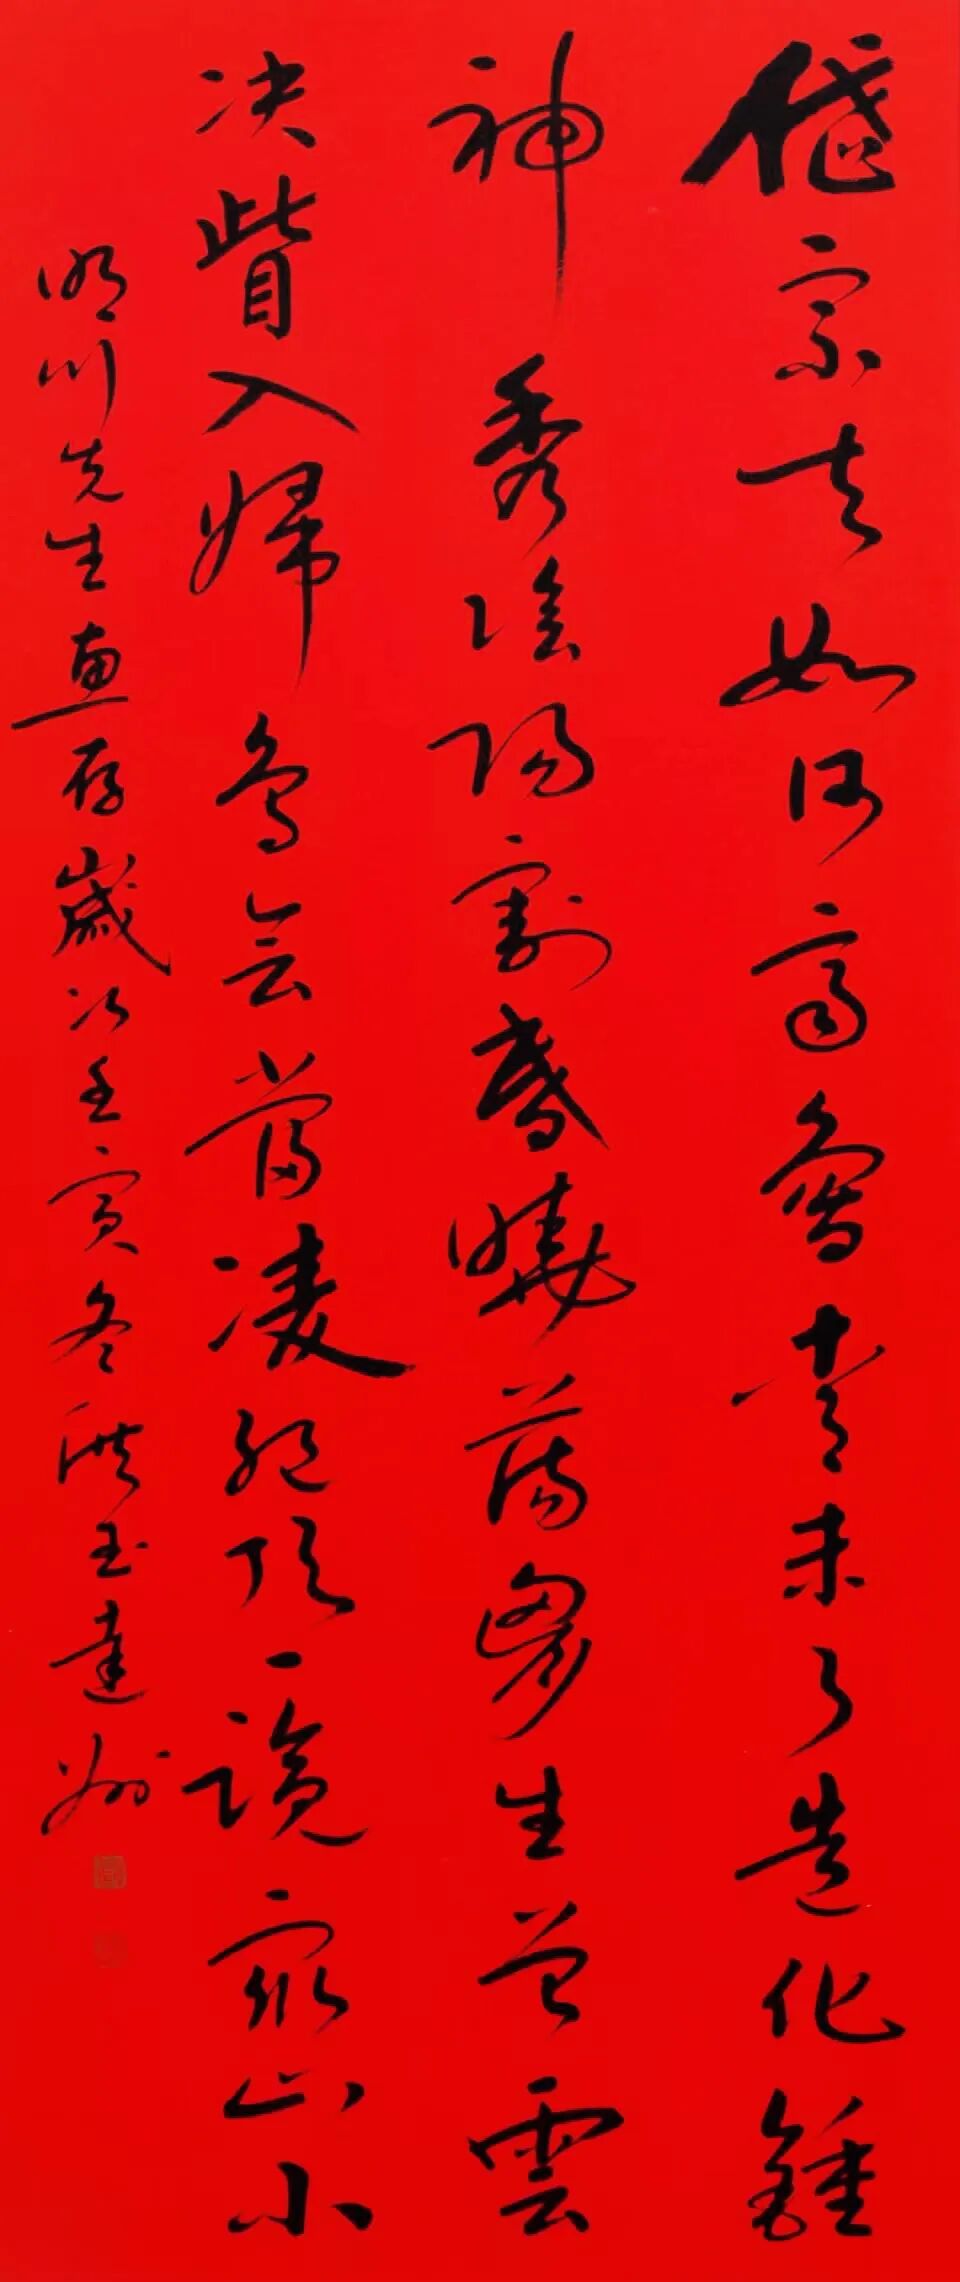 岱宗夫如何齊魯青未了造化鍾
神秀陰陽割昏曉蕩胸生曾雲
决眥入歸鳥會當凌絕頂一覽衆山小
明川先生惠存歲次壬寅冬洪玉達